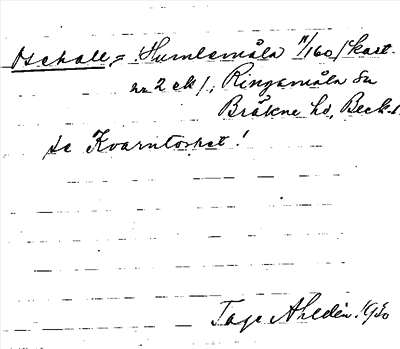 Oschall, = Humlemåla 11/160 / kart-
nr 2 ek /, Ringamåla sn
Bräkne hd, Beck.
se Kvarntorpet !
Tage Ahldén. 1930